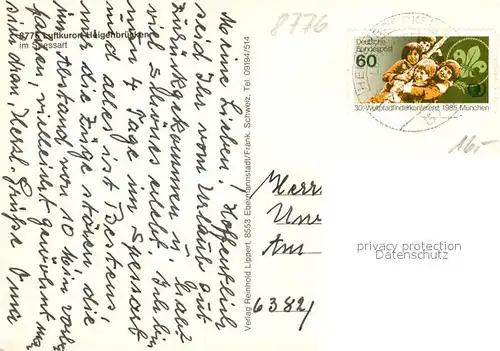 8776
8776 Luftkurort Heigenbrücken
im Spessart
Meine Lieben! Hoffentlich
seid Ihr vom Urlaub gut
zurückgekommen u. habt
viel Schönes erlebt. Ich bin
nun 4 Tage im Spessart
und alles ist Bestens,
nur die Züge stören, die
im Abstand von 10 Min. vorbei
fahren, vielleicht gewöhnt man
sich dran, Herzl. Grüße Oma
Verlag Reinhold Lippert, 8553 Ebermannstadt/Fränk. Schweiz, Tel. 09194/514
Deutsche
Bundespost
60
30. Weltpfadfinderkonferenz 1985 München
16,-
Herrn
Am
6382
privacy protection
Datenschutz